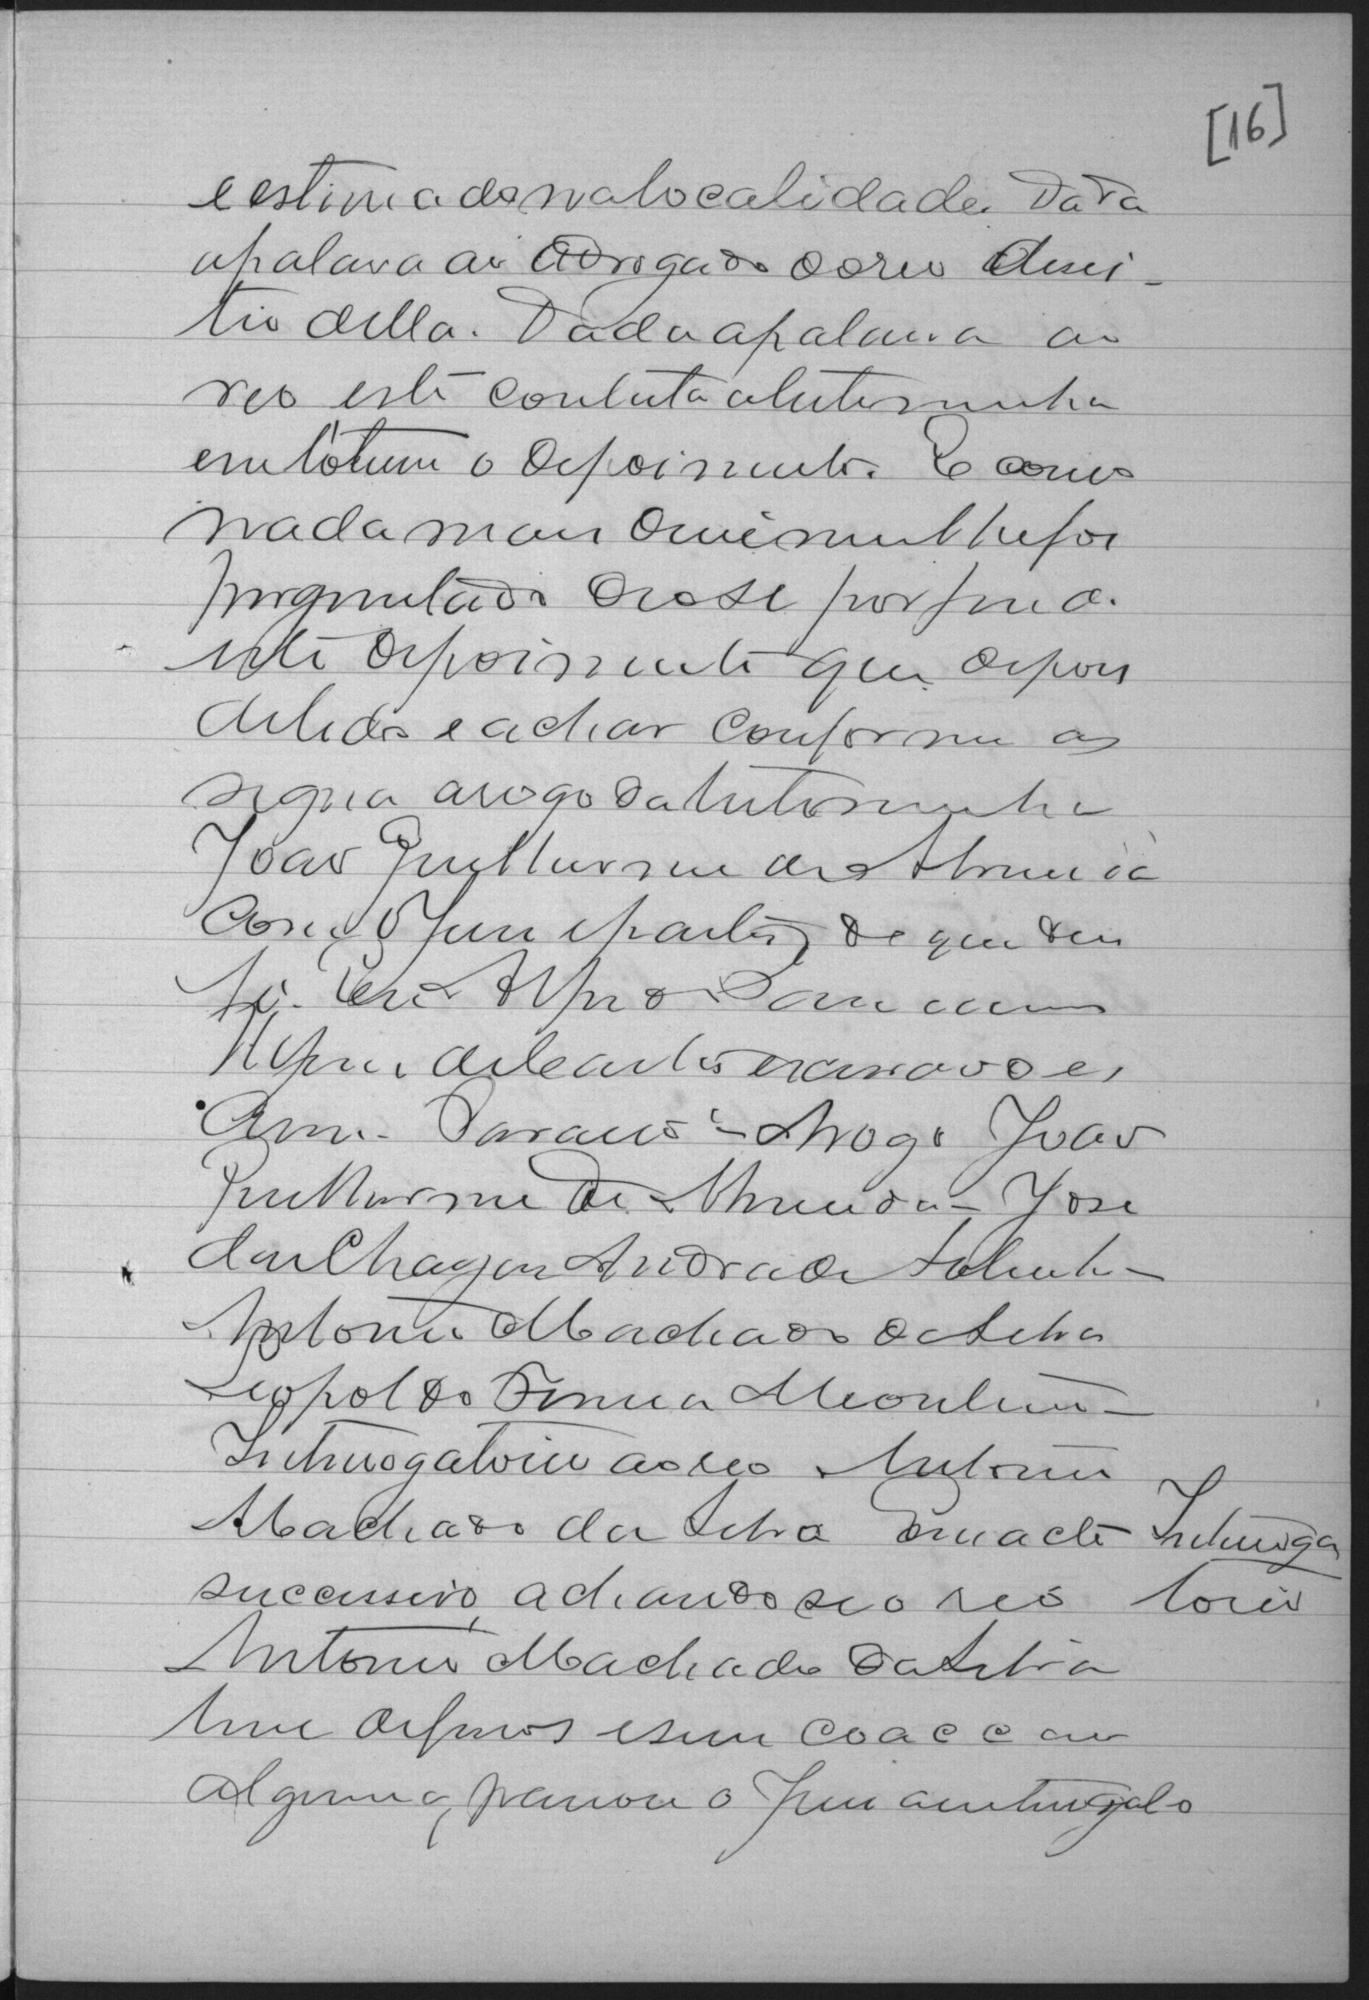 [16]
e estimado na localidade. Dada
a palavra ao advogado do reo desis-
tio della. Dada a palavra ao
reo este contesta a testemunha
em totum o depoimento. E como
nada mais disse nem lhe foi
perguntado deo-se por findo
este depoimento que depois
de lido e achar conforme as
signa a rogo da testemunha
João Guilherme de Almeida
com o Juiz e partes, do que dou
fé. Eu
escrivão es
crevi. A rogo João
Guilherme de Almeida - José
das Chagas Andrade Sobrinho -
Antonio Machado da Silva
Leopoldo
Interrogatorio ao reo Antonio
Machado da Silva Em acto Interroga
successivo, achando-se o reo torio
Antonio Machado da Silva
livre de ferros e sem coacção
alguma, passou o Juiz a interrogal-o